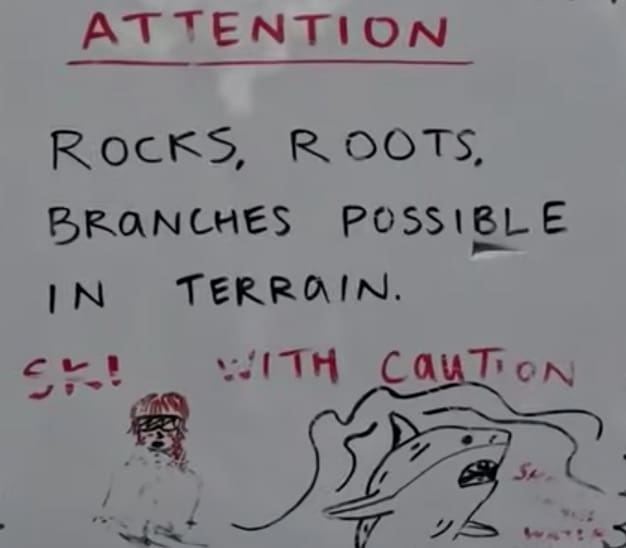 ATTENTION
ROCKS, ROOTS,
BRANCHES POSSIBLE
IN TERRAIN.
SKI WITH CAUTION
WATER